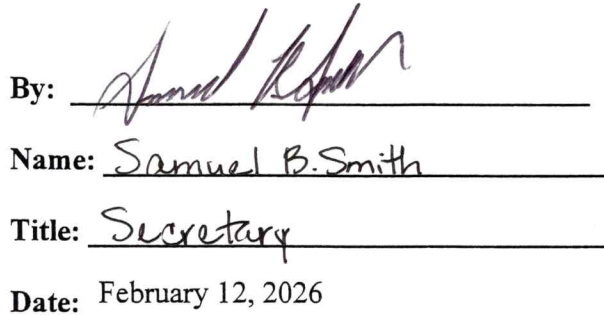 By:
Name: Samuel B. Smith
Title: Secretary
Date: February 12, 2026